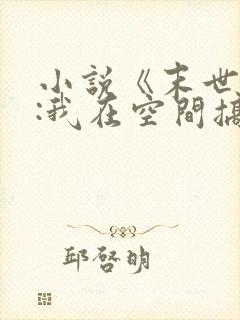 小說《末世
:我在空間搞
邱啓明